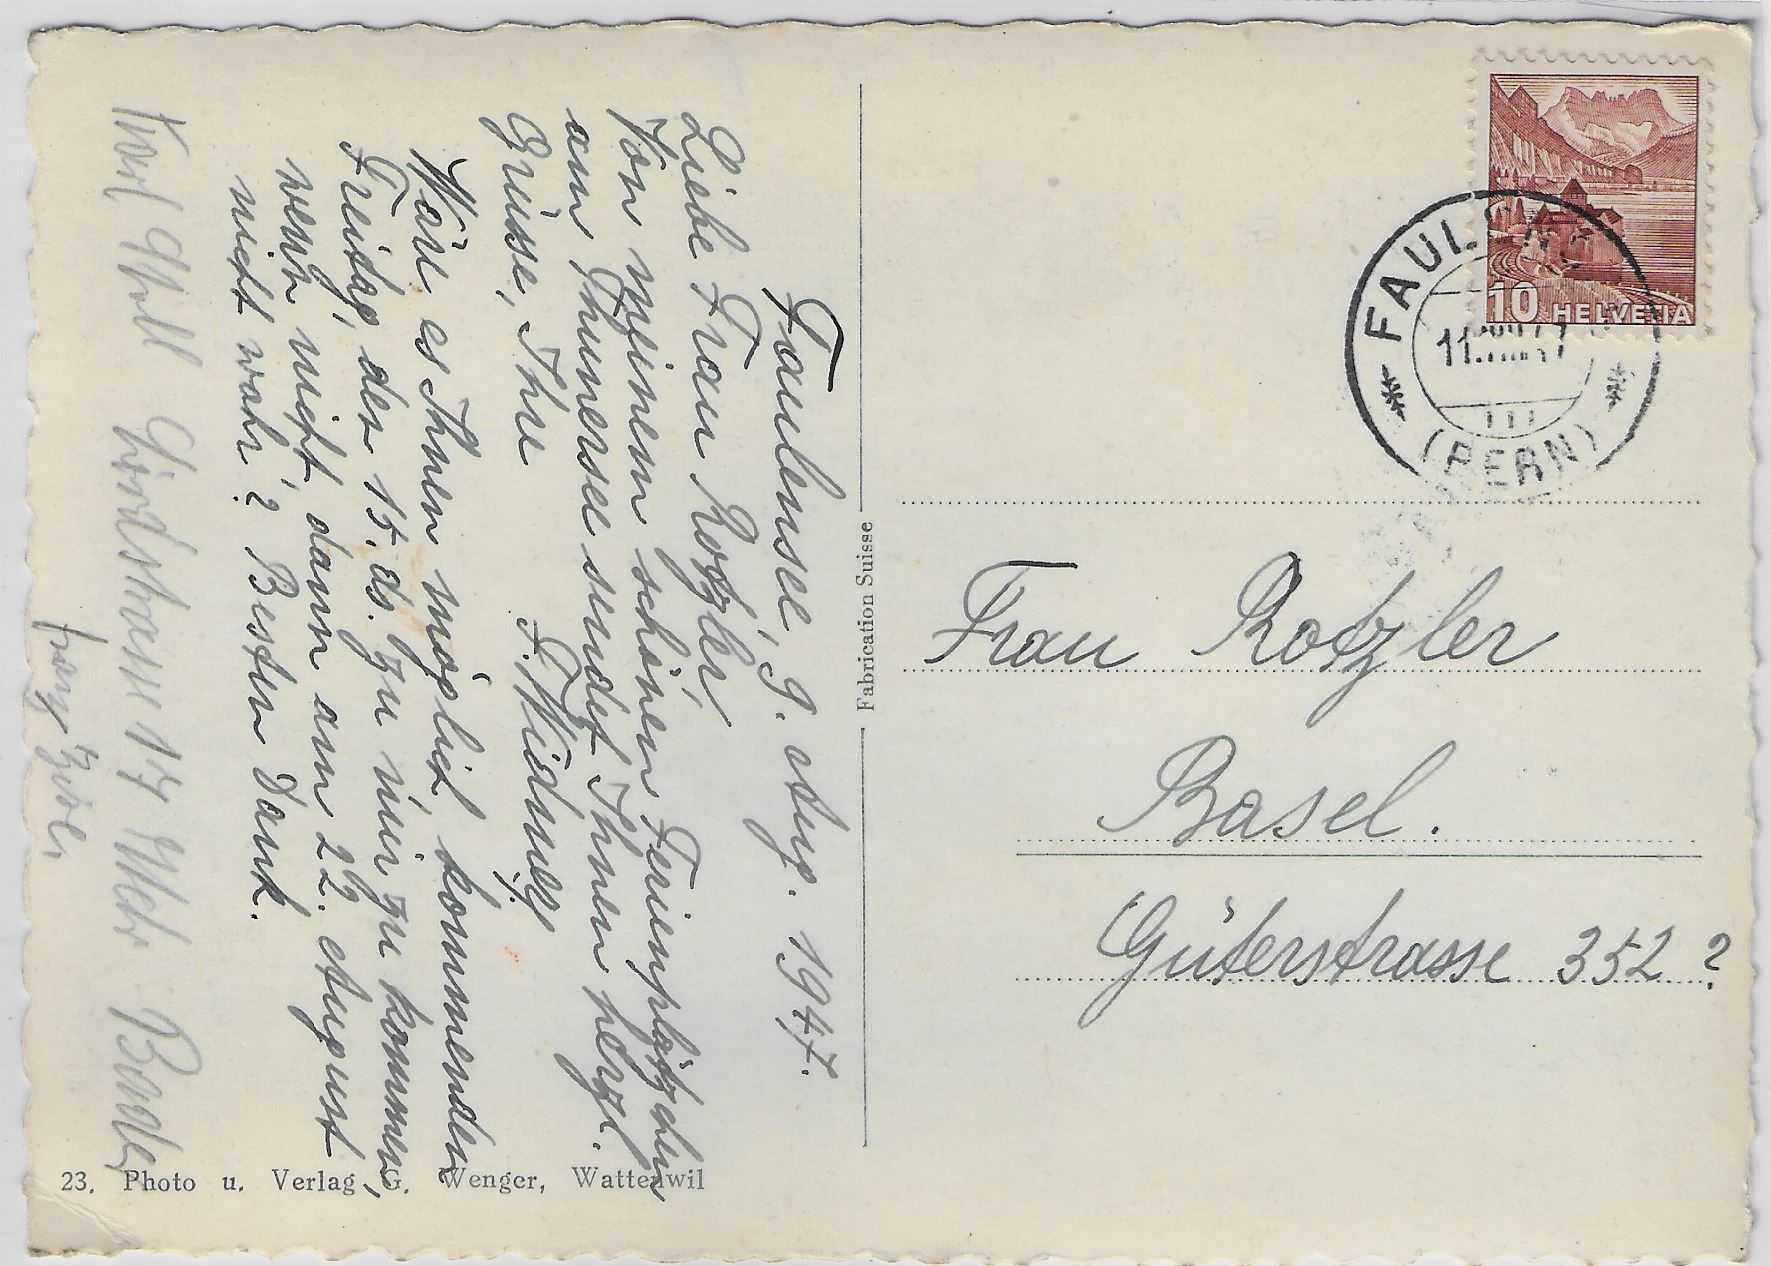 Faulensee, 9. Aug. 1947.
Liebe Frau Rotzler,
Von meinem schönen Ferienplätzchen
am Thunersee sendet Ihnen herzl.
Grüsse, Ihre
F. Widmer
Wäre es Ihnen möglich kommenden
Freitag, den 15. ds. zu mir zu kommen,
wenn nicht, dann am 22. August
nicht wahr? Besten Dank.
Karl Moll 17
Fabrication Suisse
10 HELVETIA
FAULENSEE
11.VIII.47
(BERN)
Frau Rotzler
Basel.
Güterstrasse 352?
23. Photo u. Verlag G. Wenger, Wattenwil